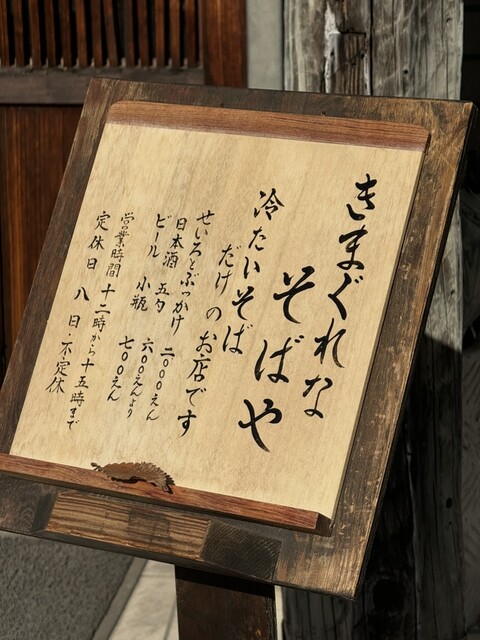 きまぐれな
そばや
冷たいそば
だけのお店です
せいろとぶっかけ 二〇〇〇えん
日本酒 五勺 六〇〇えんより
ビール 小瓶 七〇〇えん
営業時間 十二時から十五時まで
定休日 八日・不定休